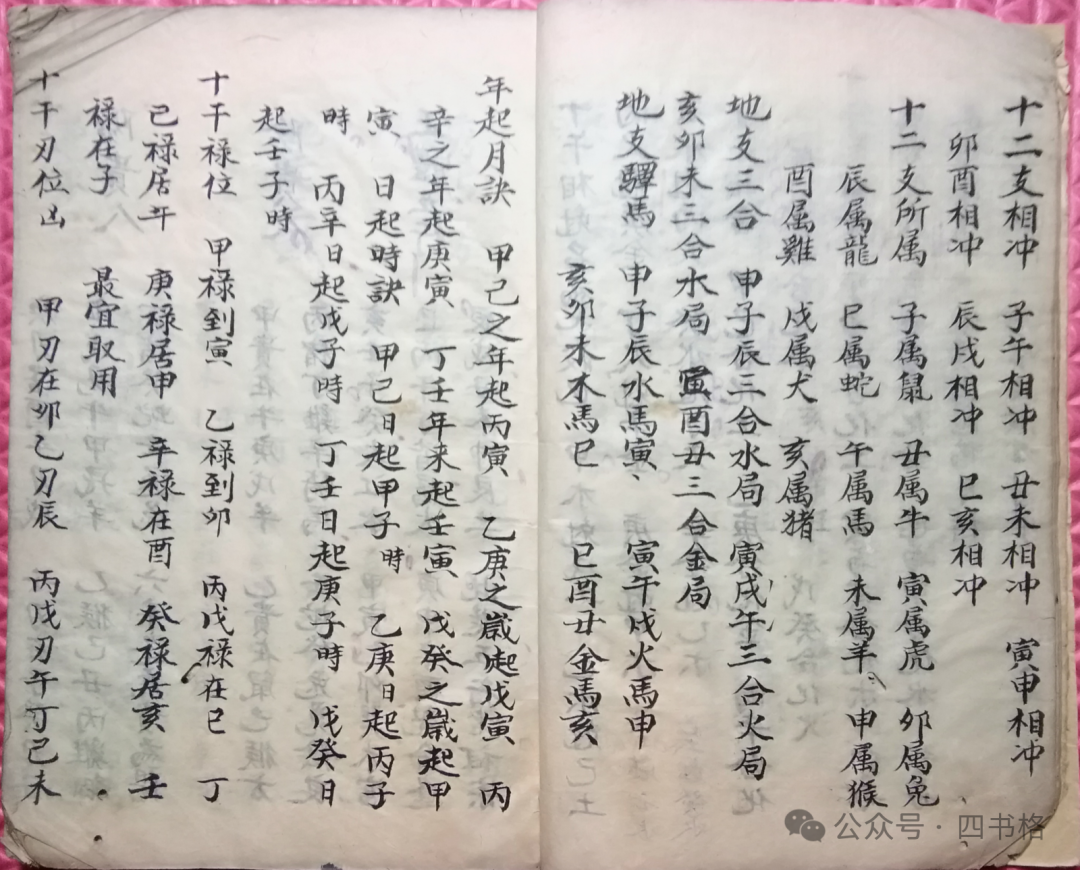 十二支相冲　子午相冲　丑未相冲　寅申相冲
卯酉相冲　辰戌相冲　巳亥相冲
十二支所属　子属鼠　丑属牛　寅属虎　卯属兔
辰属龍　巳属蛇　午属馬　未属羊　申属猴
酉属雞　戌属犬　亥属猪
地支三合　申子辰三合水局　寅戌午三合火局
亥卯未三合水局　寅酉丑三合金局
地支驛馬　申子辰水馬寅、寅午戌火馬申
亥卯未木馬巳　巳酉丑金馬亥
年起月訣　甲己之年起丙寅　乙庚之歲起戊寅　丙
辛之年起庚寅　丁壬年来起壬寅　戊癸之歲起甲
寅　日起時訣　甲己日起甲子時　乙庚日起丙子
時　丙辛日起戊子時　丁壬日起庚子時　戊癸日
起壬子時
十干禄位　甲禄到寅　乙禄到卯　丙戊禄在巳　丁
己禄居午　庚禄居申　辛禄在酉　癸禄居亥　壬
禄在子　最宜取用
十干刃位凶　甲刃在卯乙刃辰　丙戊刃午丁己未
公众号·四书格